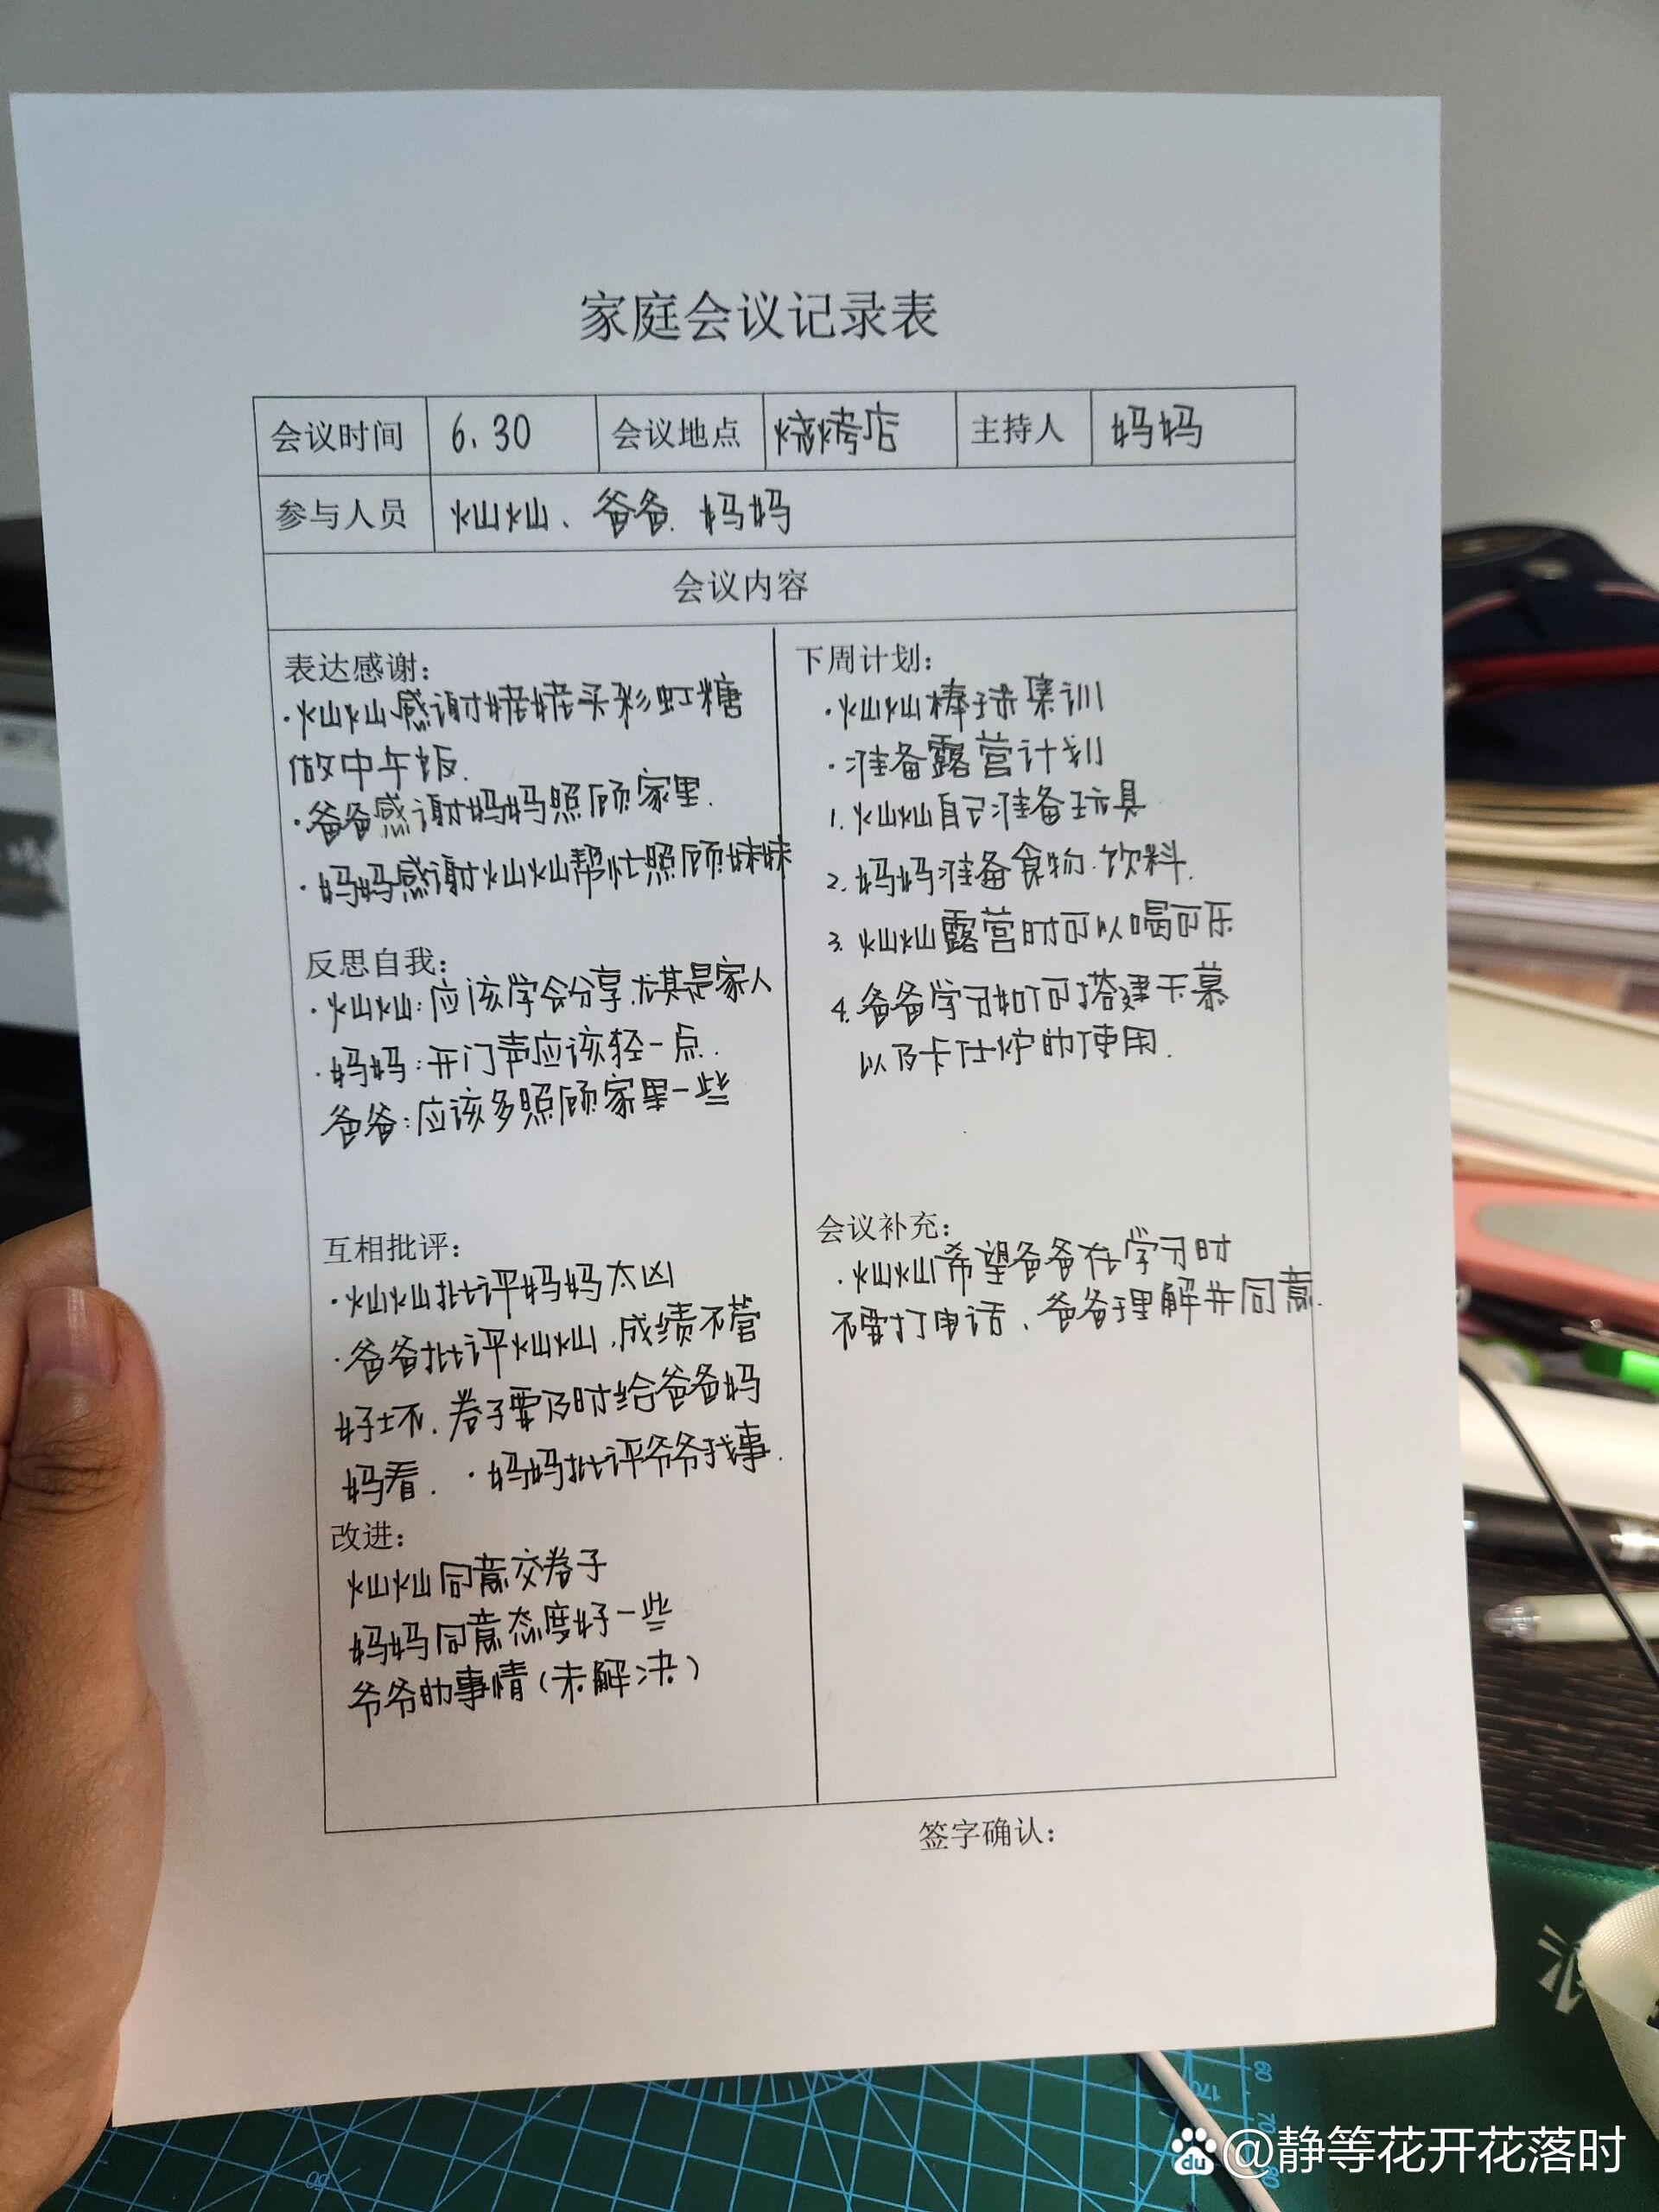 家庭会议记录表
会议时间 6.30 会议地点 烧烤店 主持人 妈妈
参与人员 灿灿、爸爸、妈妈
会议内容
表达感谢:
·灿灿感谢姥姥买彩虹糖
做中午饭.
·爸爸感谢妈妈照顾家里.
·妈妈感谢灿灿帮忙照顾妹妹
反思自我:
·灿灿:应该学会分享,尤其是家人
·妈妈:开门声应该轻一点.
爸爸:应该多照顾家里一些
互相批评:
·灿灿批评妈妈太凶
·爸爸批评灿灿,成绩不管
好坏.卷子要及时给爸爸妈
妈看. ·妈妈批评爷爷找事.
改进:
灿灿同意交卷子
妈妈同意态度好一些
爷爷的事情(未解决)
下周计划:
·灿灿棒球集训
·准备露营计划
1.灿灿自己准备玩具
2.妈妈准备食物.饮料.
3.灿灿露营时可以喝可乐
4.爸爸学习如何搭建天幕
以及卡仕炉的使用.
会议补充:
·灿灿希望爸爸在学习时
不要打电话、爸爸理解并同意.
签字确认:
60
170
70
50
du @静等花开花落时